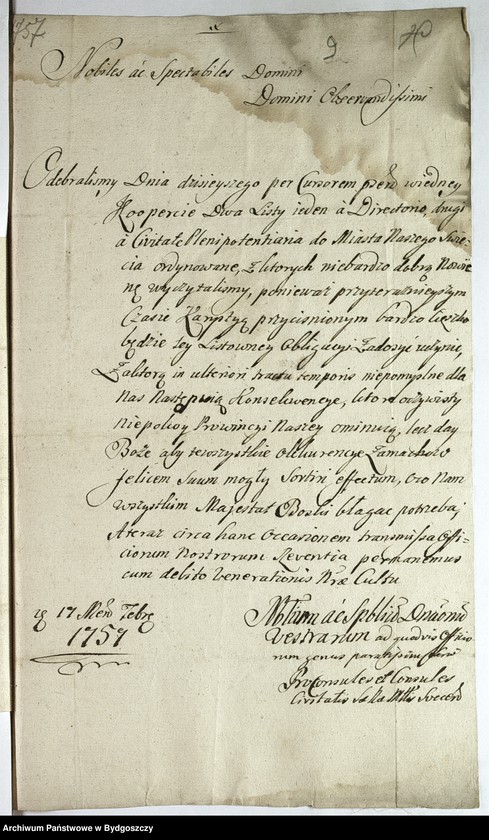 1757
9
Nobiles ac Spectabiles Domini
Domini Observandissimi
Odebralismy Dnia dzisieyszego per Cursorem wiedney
Koopercie Dwa Listy ieden à Directorio, drugi
à Civitate Plenipotentiaria do Miasta Naszego Swie-
cia ordynowane, z ktorych niebardzo dobrą Nowi-
nę wyczytalismy, ponieważ przyteraznieyszym
Czasie przycisnionym bardzo ciezko
będzie tey Listowney Obligacyi Zadosyć uczynic,
Zaktorą in ulteriori tractu temporis niepomyslne dla
Nas Nastąpią Konsekwencye, ktore oczywisty
niepokoy Prowincyi Naszey ominuią, lecz day
Boże aby tewszystkie Okkurencye Zamachow
felicem Suum mogły Sortiri effectum, Oco Nam
wszystkim Majestat Boski błagac potrzeba,
Ateraz circa hanc Occasionem transmissa Offi-
ciorum Nostrorum Reventia permanemus
cum debito Venerationis Nrae Cultu
17 Men 7bre
1757
Nblium ac Spblium Dnaonu
Vestrarum ad quaevis Officio
rum genus paratissimi Servi
ProConsules et Consules
Civitatis Sae Rae Mttis Svecen
Archiwum Państwowe w Bydgoszczy